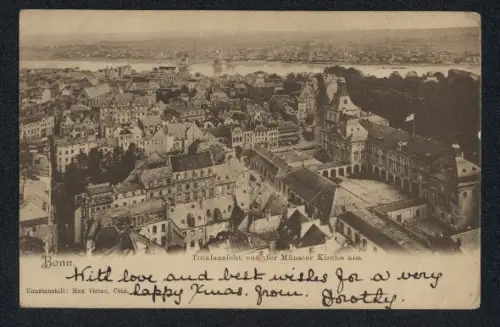 Bonn.
Totalansicht von der Münster Kirche aus.
With love and best wishes for a very
happy Xmas. from. Dorothy.
Kunstanstalt: Max Victor, Cöln.